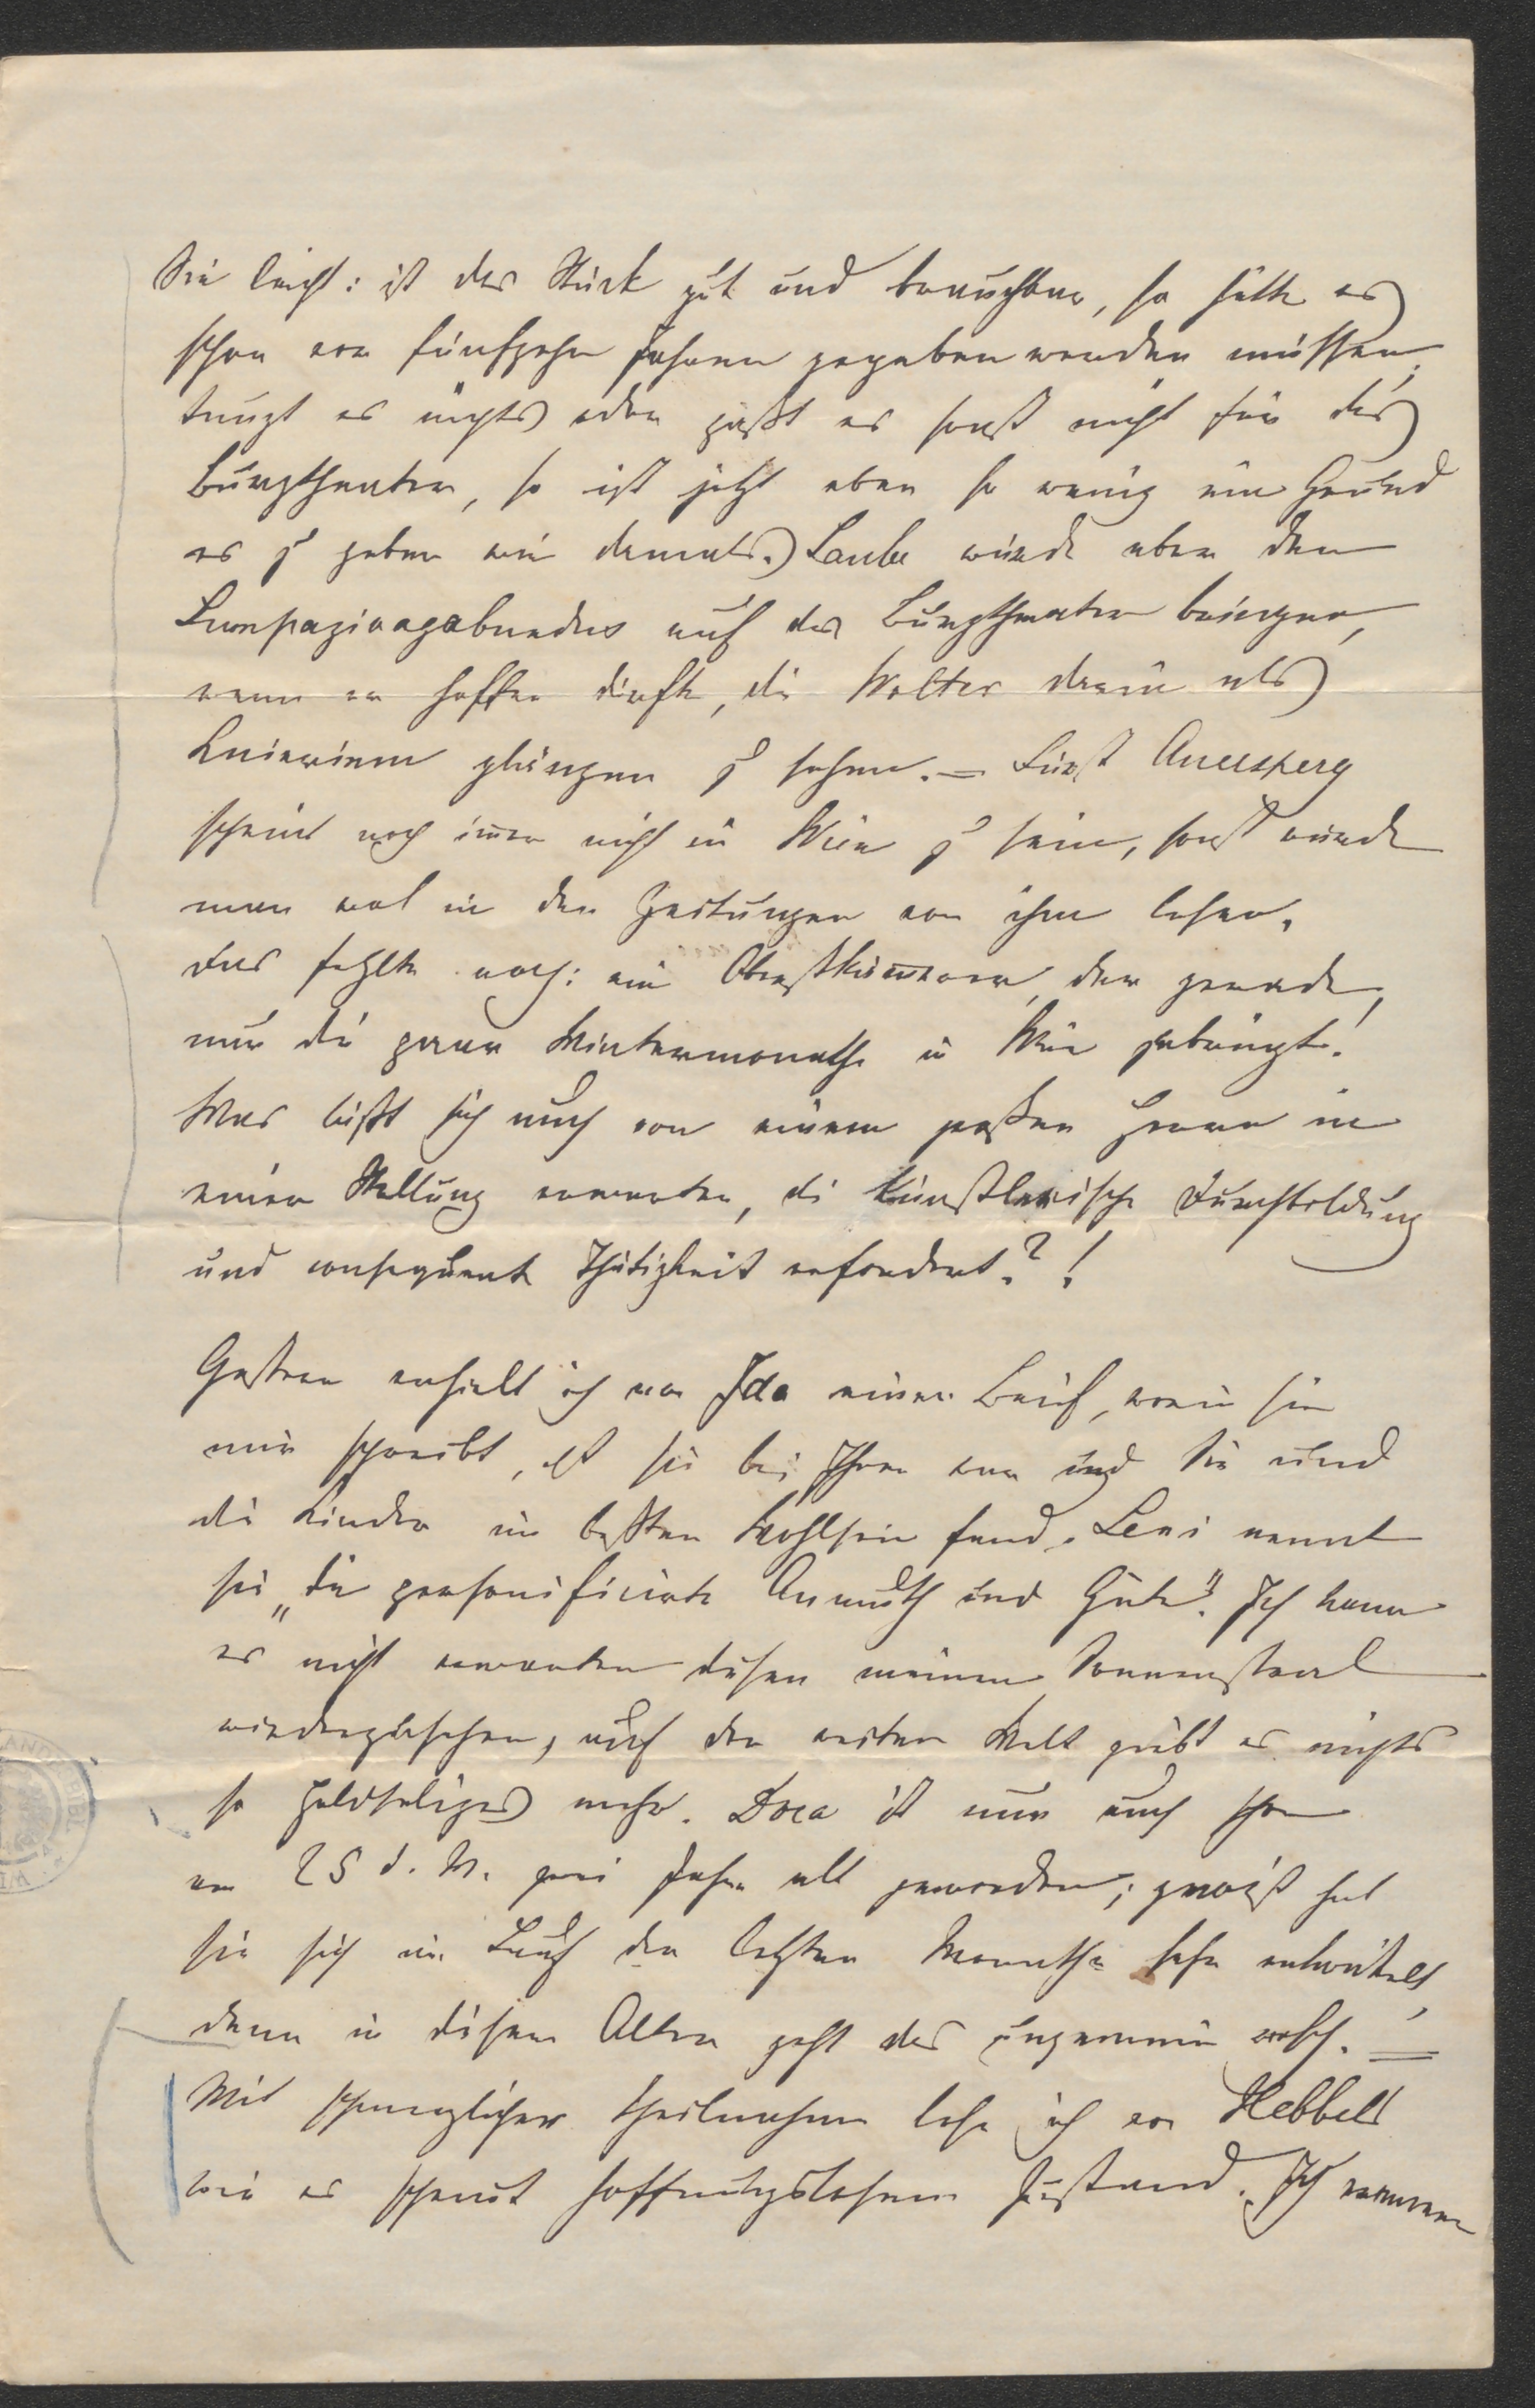 Sie leicht: ist das Stück gut und brauchbar, so hätte es
schon vor fünfzehn Jahren gegeben werden müssen,
taugt es nichts oder paßt es sonst nicht für das
Burgtheater, so ist jetzt eben so wenig ein Grund
es zu geben wie damals. Laube würde aber den
Lumpazivagabundus auf das Burgtheater bringen,
wenn er hoffen dürfte, die Wolter darin als
Knieriem glänzen zu sehen. = Fürst Auersperg
scheint noch immer nicht in Wien zu sein, sonst würde
man wol in den Zeitungen von ihm lesen.
Das fehlte noch: ein Oberstkämmerer, der gerade
nur die paar Wintermonathe in Wien zubringt!
Was läßt sich auch von einem großen Herrn in
einer Stellung erwarten, die künstlerische Durchbildung
und consequente Thätigkeit erfordert?!
Gestern erhielt ich von Ida einen Brief, worin sie
mir schreibt, daß sie bei Ihnen war und Sie und
die Kinder im besten Wohlsein fand. Leni nennt
sie „die personificirte Anmuth und Güte". Ich kann
es nicht erwarten diesen meinen Sonnenstral
wiederzusehen, auf der weiten Welt gibt es nichts
so Holdseliges mehr. Dora ist nun auch schon
am 25 d. M. zwei Jahre alt geworden; gewiß hat
sie sich im Lauf der letzten Monathe sehr entwickelt,
denn in diesem Alter geht das ungemein rasch. =
Mit schmerzlicher Theilnahme lese ich von Hebbels
wie es scheint hoffnungslosem Zustand. Ich